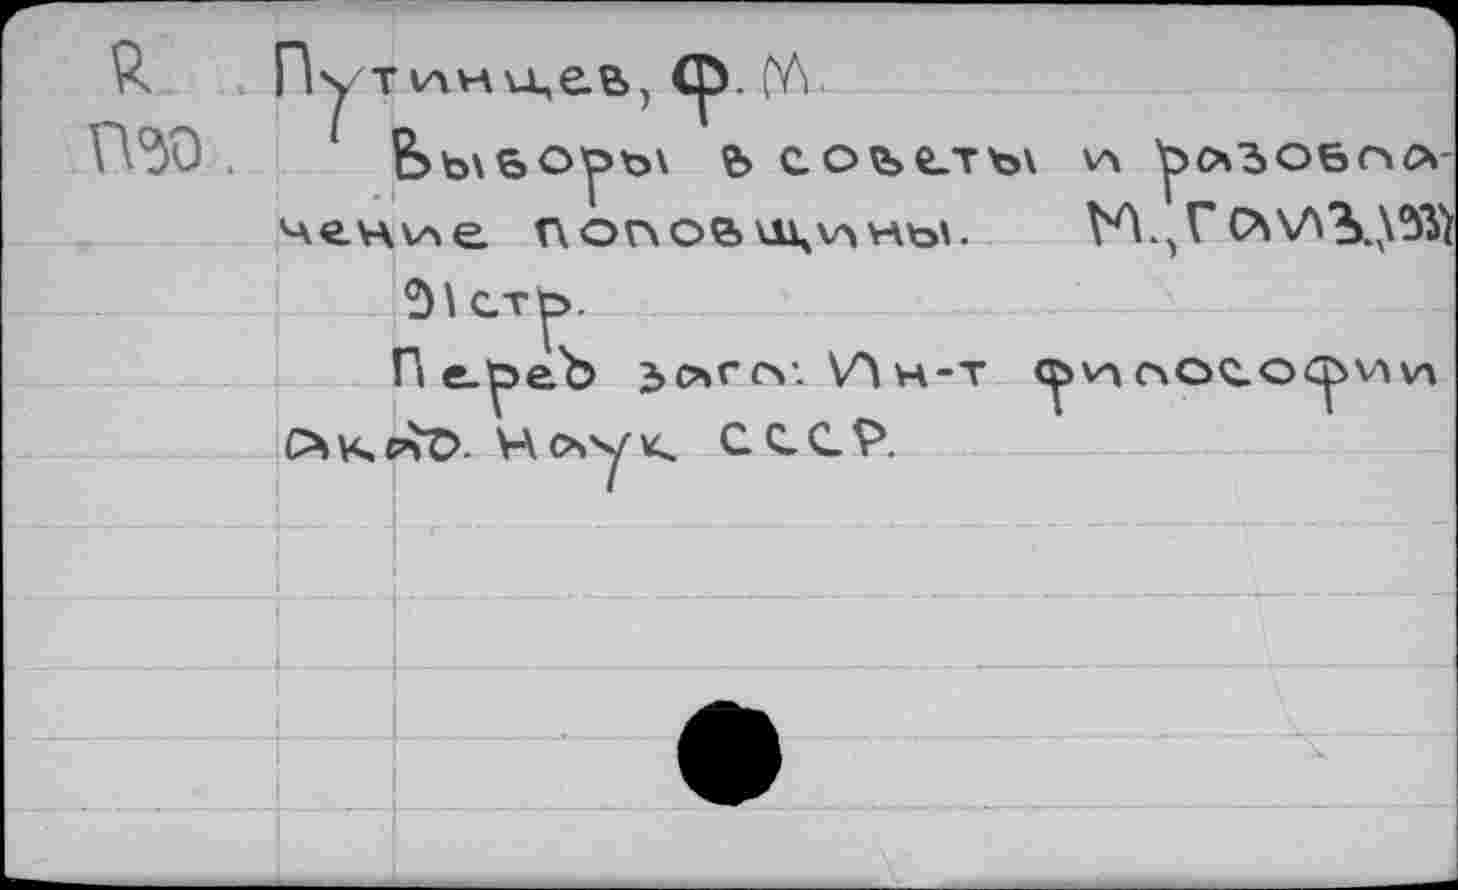 R Путинцев, Ф. М.
П90. Выборы в советы и разобла-
чение поповщины. М., ГАИЗ, 1931
91 стр.
Перед загл: Ин-т философии
Акад. Наук СССР.